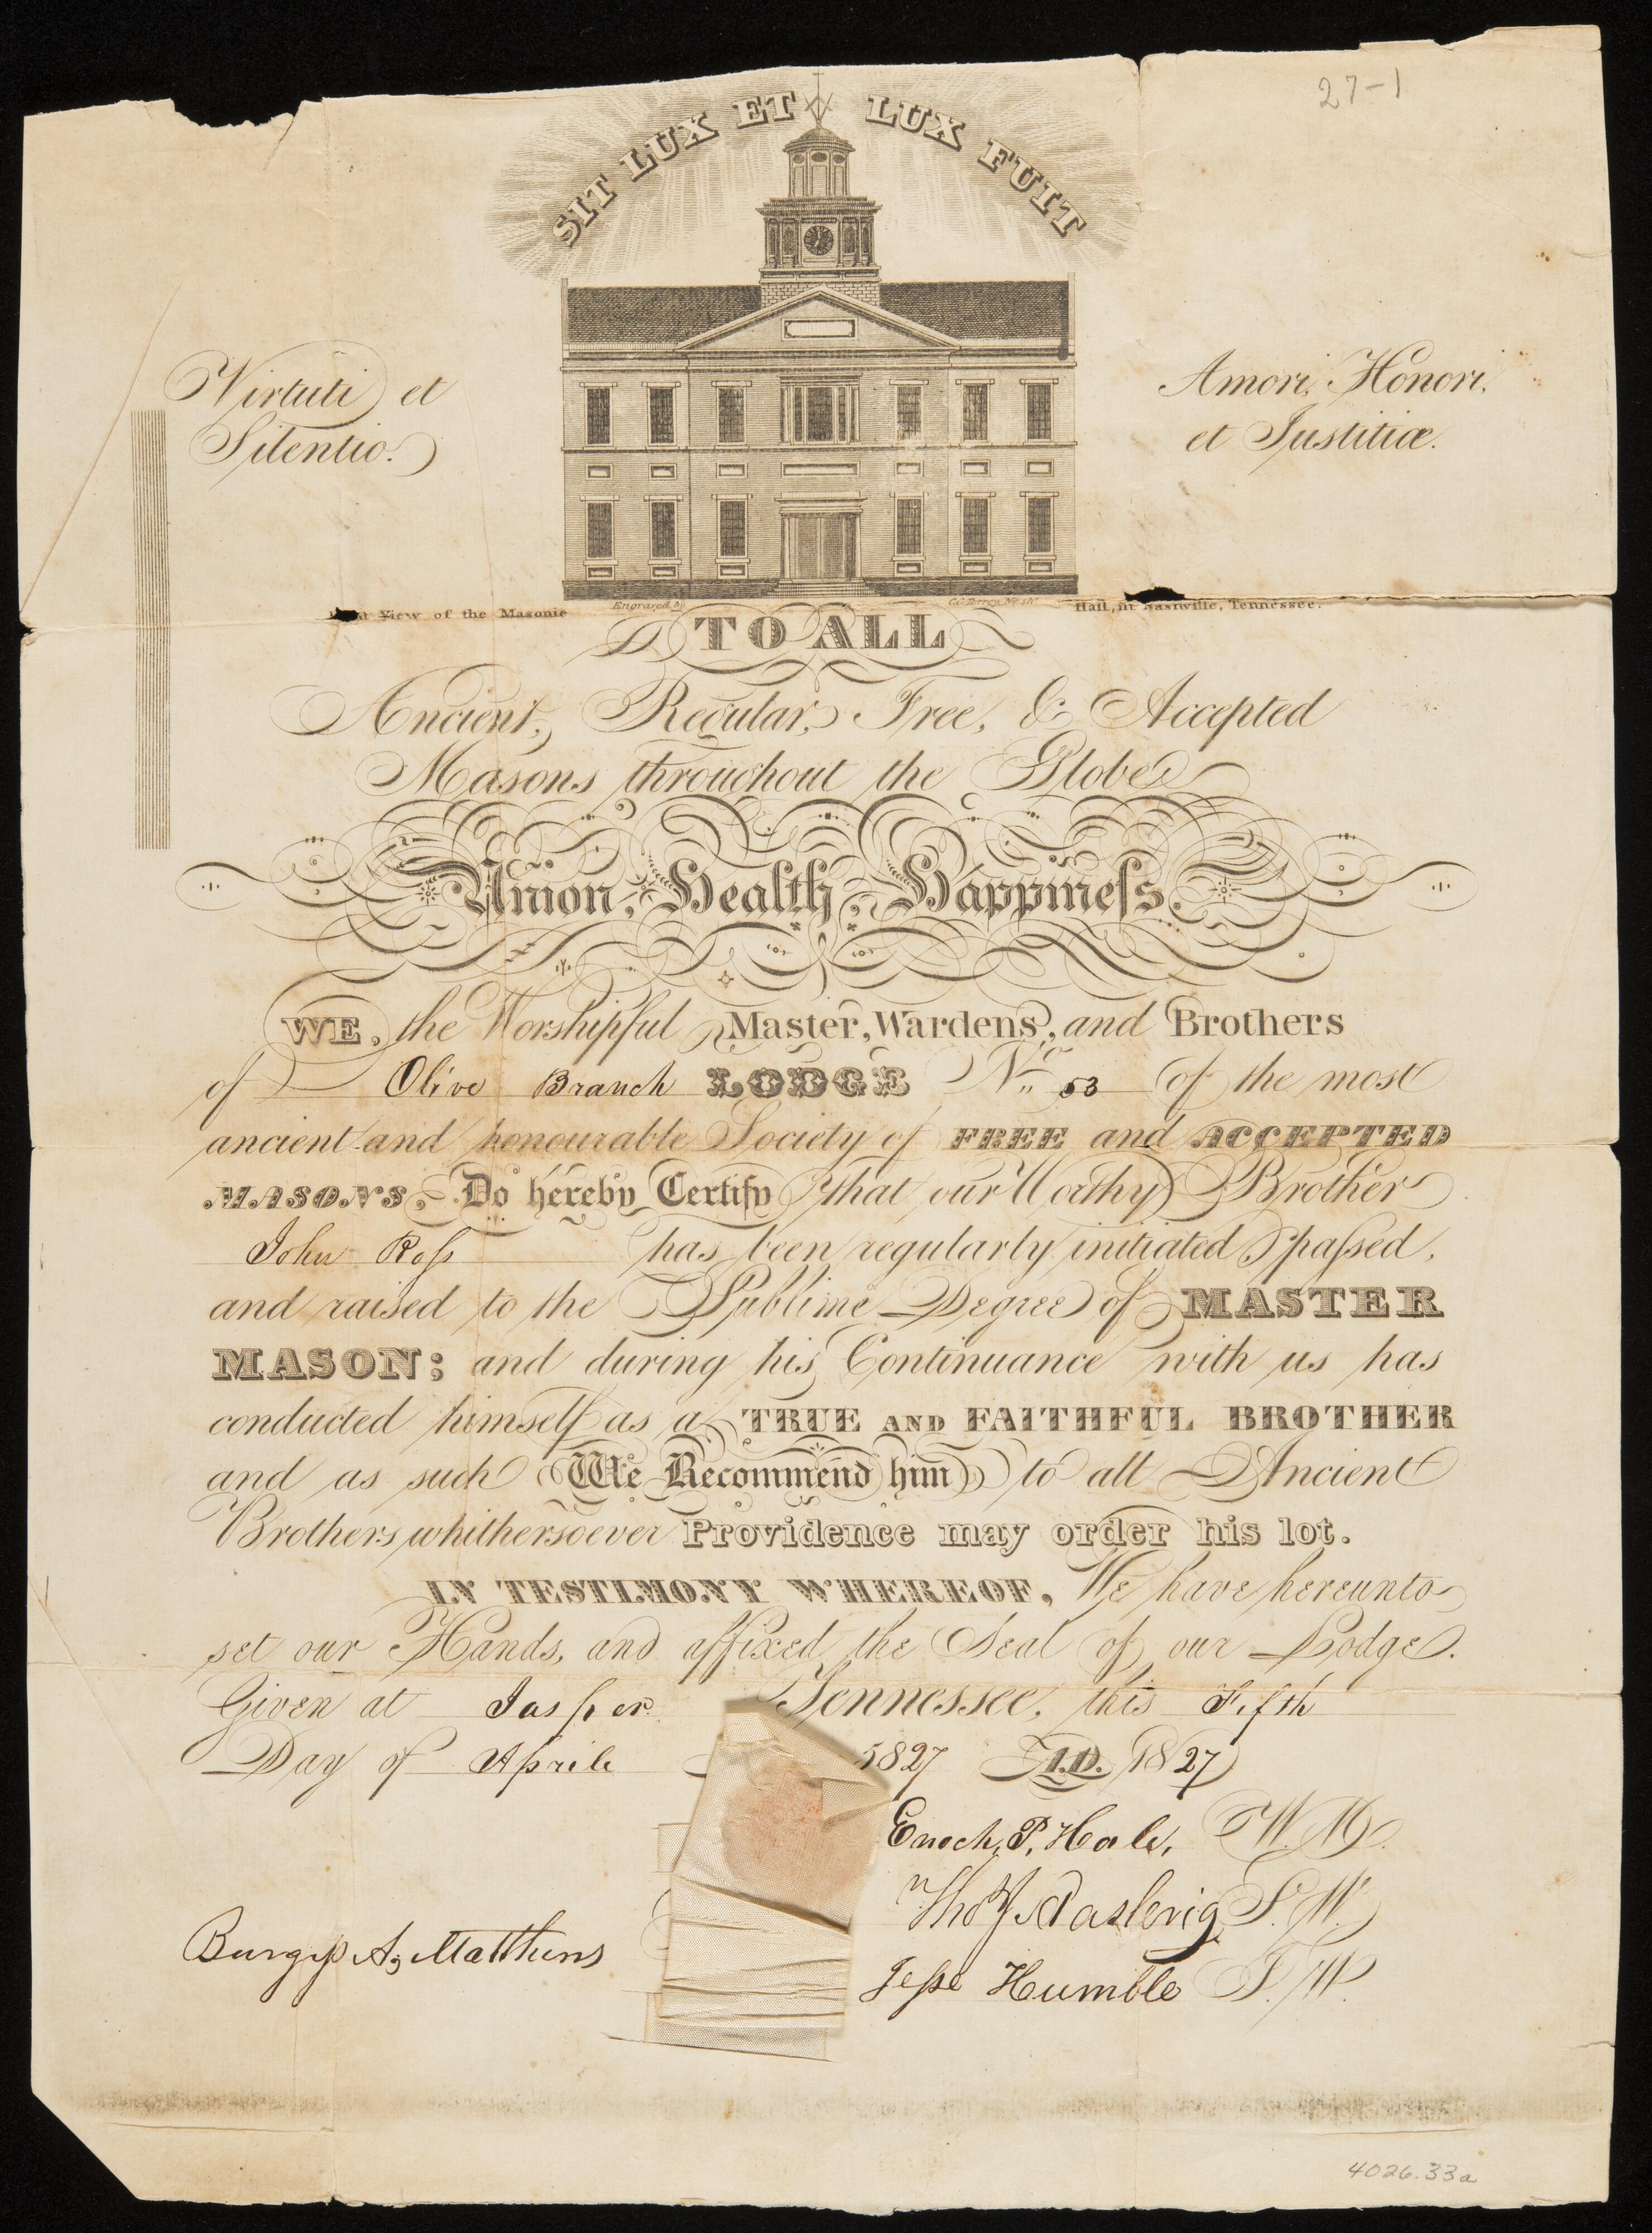 27-1
SIT LUX ET LUX FUIT
Virtuti et
Silentio.
Amori, Honori,
et Justitiæ.
View of the Masonic
Engraved by
Hall, in Nashville, Tennessee.
TO ALL
Ancient, Regular, Free, & Accepted
Masons throughout the Globe
Union, Health, Happineſs.
WE, the Worshipful Master, Wardens, and Brothers
of Olive Branch LODGE No. 53 of the most
ancient and honourable Society of FREE and ACCEPTED
MASONS, Do hereby Certify that our Worthy Brother
John Roſs has been regularly initiated, paſsed,
and raised to the Sublime Degree of MASTER
MASON; and during his Continuance with us has
conducted himself as a TRUE AND FAITHFUL BROTHER
and as such We Recommend him to all Ancient
Brothers whithersoever Providence may order his lot.
IN TESTIMONY WHEREOF, We have hereunto
set our Hands, and affixed the Seal of our Lodge.
Given at Jasper Tennessee, this Fifth
Day of Aprile 5827 A.D. 1827
Enoch, P, Hale, W.M.
Tho J S.W.
Burgeſs A, Matthews
Jeſse Humble J.W.
4026.33a